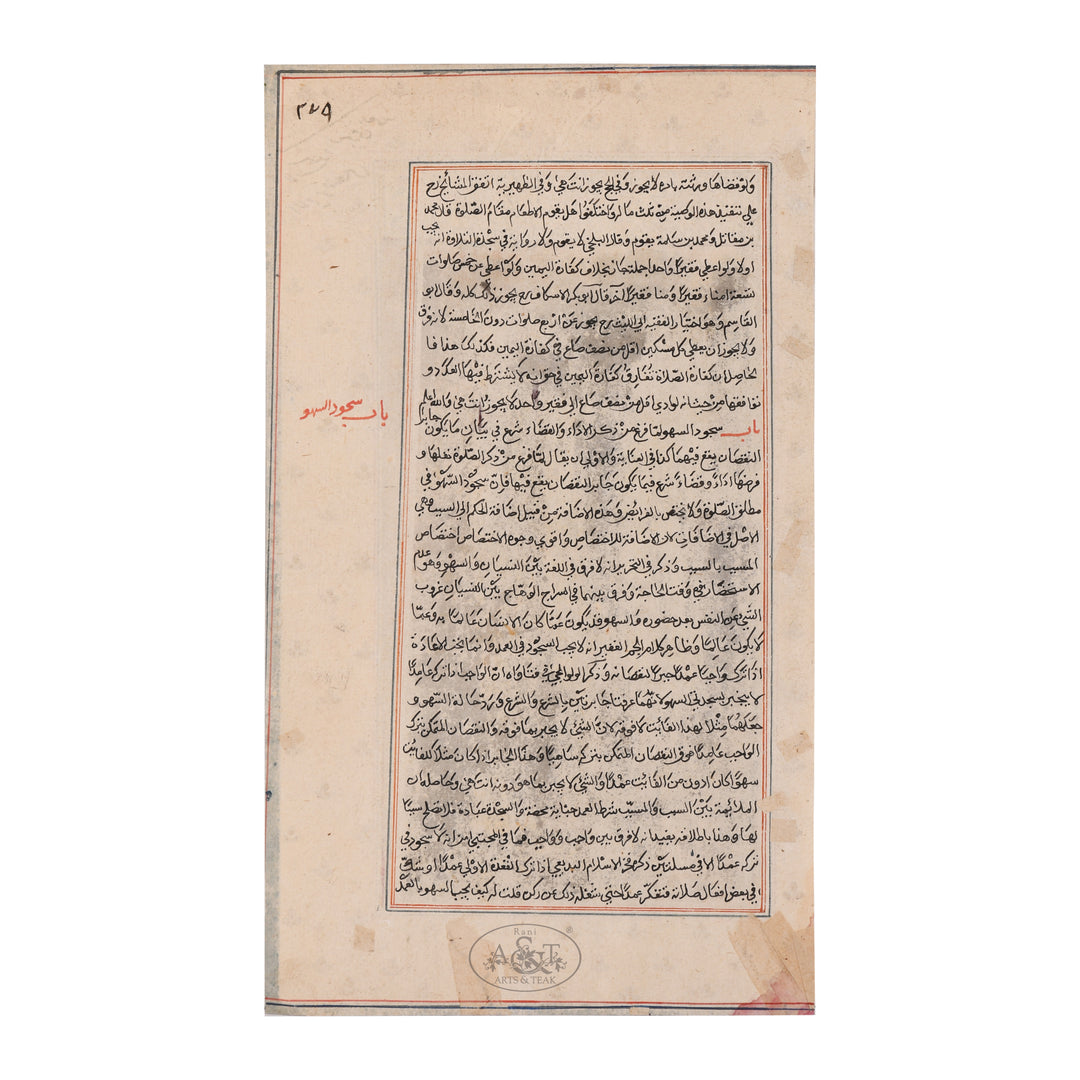 ٢٧٥
ولو قضاها ورثته بامره لا يجوز وفي الحج يجوز انتهى وفي الظهيرية اتفق المشايخ رح
على تنفيذ هذه الوصية من ثلث ماله واختلفوا هل يقوم الاطعام مقام الصلوة قال محمد
بن مقاتل ومحمد بن سلمة يقوم وقال البلخي لا يقوم ولا رواية في سجدة التلاوة انه يجب
اولا ولو اعطى فقيرا واحدا جملة جاز بخلاف كفارة اليمين ولو اعطى عن خمس صلوات
تسعة امناء فقيرا ومنا فقيرا آخر قال ابو بكر الاسكاف رح يجوز ذلك كله وقال ابو
القاسم وهو اختيار الفقيه ابي الليث رح يجوز عن اربع صلوات دون الخامسة لانه فرق
ولا يجوز ان يعطي كل مسكين اقل من نصف صاع في كفارة اليمين فكذلك هذا فا
لحاصل ان كفارة الصلاة تفارق كفارة اليمين في حق انه لا يشترط فيها العدد و
توافقها من حيث انه لو ادى اقل من نصف صاع الى فقير واحد لا يجوز انتهى والله اعلم
باب سجود السهو
باب سجود السهو لما فرغ من ذكر الاداء والقضاء شرع في بيان ما يكون جابرا
لنقصان يقع فيهما كذا في العناية والاولى ان يقال لما فرغ من ذكر الصلوة نفلها و
فرضها اداء وقضاء شرع فيما يكون جابرا لنقصان يقع فيها فان سجود السهو في
مطلق الصلوة ولا يختص بالفرائض وهذه الاضافة من قبيل اضافة الحكم الى السبب وهي
الاصل في الاضافات لان الاضافة للاختصاص واقوى وجوه الاختصاص اختصاص
المسبب بالسبب وذكر في التحرير انه لا فرق في اللغة بين النسيان والسهو وهو عدم
الاستحضار في وقت الحاجة وفرق بينهما في السراج الوهاج بين النسيان عزوب
الشيء عن النفس بعد حضوره والسهو قد يكون عما كان الانسان عالما به وعما
لا يكون عالما وظاهر كلام الجم الغفير انه لا يجب السجود في العمد وانما يجب الاعادة
اذا ترك واجبا عمدا جبرا لنقصانه وذكر الولوالجي في فتاواه ان الواجب اذا تركه عامدا
لا ينجبر بسجدتي السهو لانهما عرفتا جابرتين بالشرع والشرع ورد حالة السهو و
جعلهما مثلا لهذا الفائت لا فوقه لان الشيء لا يجبر بما فوقه والنقصان المتمكن بترك
الواجب عامدا فوق النقصان المتمكن بتركه ساهيا وهذا الجابر اذا كان مثلا للفائت
سهوا كان ادون من الفائت عمدا والشيء لا يجبر بما هو دونه انتهى وحاصله ان
الملائمة بين السبب والمسبب شرط العمد جناية محضة والسجدة عبادة فلا تصلح سببا
لها وهذا باطلاقه يفيد انه لا فرق بين واجب وواجب فما في المجتبى من انه لا سجود في
تركه عمدا الا في مسئلتين ذكرهما فخر الاسلام البديعي اذا ترك القعدة الاولى عمدا او شك
في بعض افعال صلاته فتفكر عمدا حتى شغله ذلك عن ركن قلت له كيف يجب السهو بالعمد
Rani
A&T
ARTS & TEAK
®